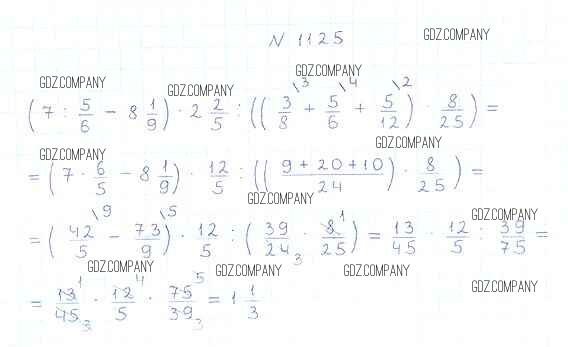 N 1125
GDZ.COMPANY
GDZ.COMPANY
GDZ.COMPANY
GDZ.COMPANY
(7 : 5/6 - 8 1/9) · 2 2/5 : ((3/8 \3 + 5/6 \4 + 5/12 \2) · 8/25) =
GDZ.COMPANY
GDZ.COMPANY
= (7 · 6/5 - 8 1/9) · 12/5 : ((9 + 20 + 10)/24) · 8/25) =
GDZ.COMPANY
GDZ.COMPANY
= (42/5 \9 - 73/9 \5) · 12/5 : (39/24 3 · 8 1/25) = 13/45 · 12/5 : 39/75 =
GDZ.COMPANY
GDZ.COMPANY
GDZ.COMPANY
GDZ.COMPANY
= 13 1/45 3 · 12 4/5 · 75 5/39 3 = 1 1/3